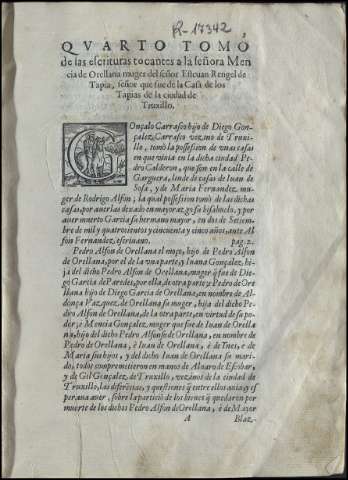 R-17342
QVARTO TOMO
de las escrituras tocantes a la señora Men
cia de Orellana muger del señor Esteuan Rengel de
Tapia, señor que fue de la Casa de los
Tapias de la ciudad de
Truxillo.
GOnçalo Carrasco hijo de Diego Gon-
çalez Carrasco vezino de Truxi-
llo, tomò la possesion de vnas casas
en que viuia en la dicha ciudad Pe-
dro Calderon, que son en la calle de
Garguera, linde de casas de Iuan de
Sosa, y de Maria Fernandez, mu-
ger de Rodrigo Alfon; la qual possesion tomò de las dichas
casas, por auerlas dexado en mayorazgo su bisabuelo, y por
auer muerto Garcia su hermano mayor, en dos de Setiem
bre de mil y quatrocientos y cincuenta y cinco años, ante Al
fon Fernandez, escriuano. pag. 2.
Pedro Alfon de Orellana el moço, hijo de Pedro Alfon
de Orellana, por el de la vna parte; y Iuana Gonçalez, hi
ja del dicho Pedro Alfon de Orellana, muger q̃ fue de Die
go Garcia de Paredes, por ella, de otra parte; y Pedro de Ore
llana hijo de Diego Garcia de Orellana, en nombre de Al-
donça Vazquez, de Orellana su muger, hija del dicho Pe-
dro Alfon de Orellana, de la otra parte, en virtud de su po-
der; e Mencia Gonçalez, muger que fue de Iuan de Orella
na, hijo del dicho Pedro Alfonso de Orellana, en nombre
de Pedro de Orellana, è Iuan de Orellana, è de Ines, e de
Maria sus hijos, y del dicho Iuan de Orellana su mari-
do, todos comprometieron en manos de Aluaro de Escobar,
y de Gil Gonçalez, de Truxillo, vezinos de la ciudad de
Truxillo, las diferẽcias, y questiones q̃ entre ellos auia, y es
peraua auer, sobre la particiõ de los bienes q̃ quedaron por
muerte de los dichos Pedro Alfon de Orellana, è de Mayor
A Blaz-